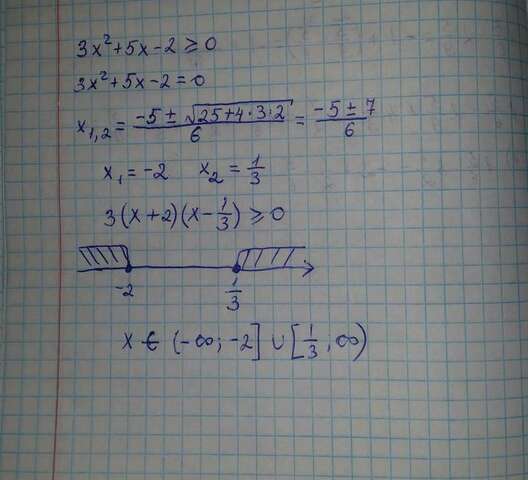 3x²+5x-2≥0
3x²+5x-2=0
x₁,₂= (-5±√(25+4·3·2))/6 = (-5±7)/6
x₁=-2 x₂=1/3
3(x+2)(x-1/3)≥0
-2 1/3
x∈(-∞;-2]∪[1/3;∞)